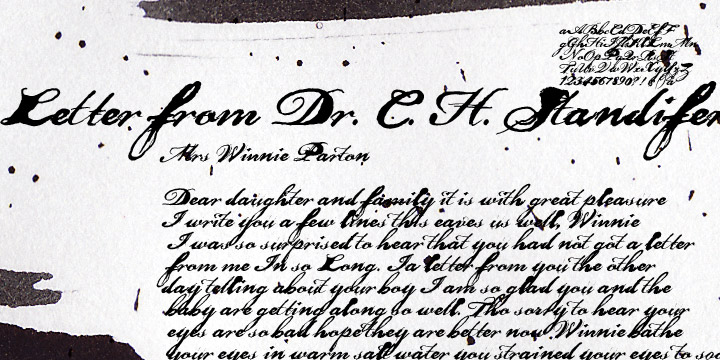 aA Bb Cc Dd Ee Ff
gGhHiIJjKkLlMm
NnOoPpQqRrSs
TtUuVvWwXxYyZz
1234567890?!&
Letter from Dr. C. H. Standifer
Mrs Winnie Parton
Dear daughter and family it is with great pleasure
I write you a few lines this eaves us well, Winnie
I was so surprised to hear that you had not got a letter
from me In so Long. Ia letter from you the other
day telling about your boy I am so glad you and the
baby are getting along so well. Tho sorry to hear your
eyes are so bad hope they are better now Winnie bathe
your eyes in warm salt water you strained your eyes to